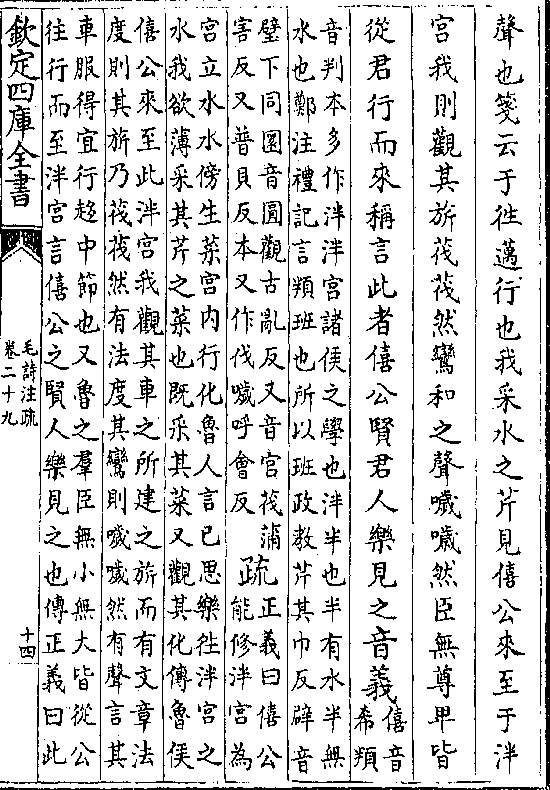 聲也箋云于往邁行也我采水之芹見僖公來至于泮
宮我則觀其旂茷茷然鸞和之聲噦噦然臣無尊卑皆
從君行而來稱言此者僖公賢君人樂見之音義僖音
希頖
音判本多作泮泮宮諸侯之學也泮半也半有水半無
水也鄭注禮記言頖班也所以班政教芹其巾反辟音
璧下同圜音圓觀古亂反又音官茷蒲
害反又普貝反本又作伐噦呼會反
疏正義曰僖公
能修泮宮為
宮立水水傍生菜宮内行化魯人言已思樂徃泮宮之
水我欲薄采其芹之菜也既采其菜又觀其化傳魯侯
僖公來至此泮宮我觀其車之所建之旂而有文章法
度則其旂乃茷茷然有法度其鸞則噦噦然有聲言其
車服得宜行趍中節也又魯之羣臣無小無大皆從公
往行而至泮宮言僖公之賢人樂見之也傳正義曰此
欽定四庫全書
毛詩注疏
卷二十九
十四